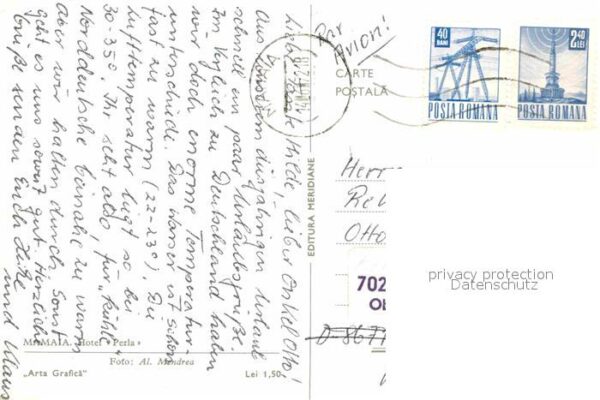 Liebe Tante Hilde, lieber Onkel Otto!
Aus unserem diesjährigen Urlaub
schnell ein paar Urlaubsgrüße.
Im Vergleich zu Deutschland haben
wir doch enorme Temperatur-
unterschiede. Das Wasser ist schon
fast zu warm (22-23°). Die
Lufttemperatur liegt so bei
30-35°. Ihr seht also, für "kühle"
Norddeutsche beinahe zu warm
aber wir halten durch. Sonst
geht es uns soweit gut. Herzliche
Grüße senden Euch
und Klaus
MAMAIA. Hotel "Perla"
Foto: Al. Mendrea
„Arta Grafică”
Lei 1,50
EDITURA MERIDIANE
Par
Avion!
CARTE
POȘTALĂ
40
BANI
POSTA ROMANA
2,40
LEI
POSTA ROMANA
Herr
Otto
702
Ob
D-867
privacy protection
Datenschutz